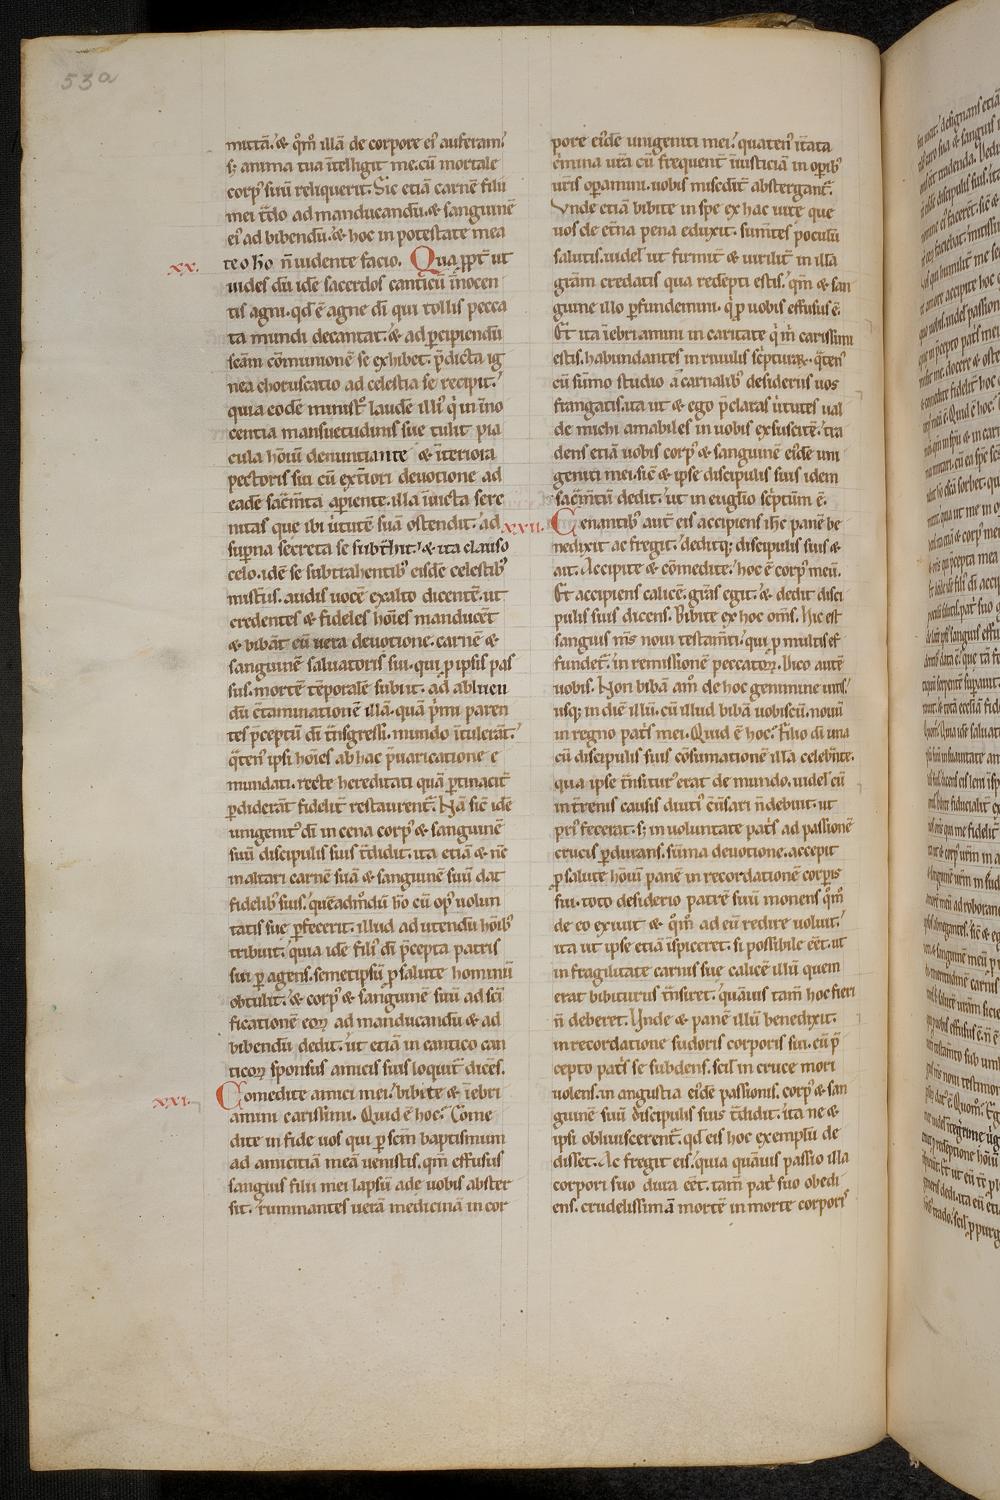 53a
mittā. & qm̄ illā de corpore eı᷒ auferam.
sʒ anima tua ītelligit me. cū mortale
corp᷒ suū reliquerit. Sic etiā carnē filii
mei t̄do ad manducandū. & sanguinē
ei᷒ ad bibendū. & hoc in potestate mea
xx. te o ho n̄ uidente facio. Qua ppt̄ ut
uides dū idē sacerdos canticū īnocen
tis agni. qd̄ ē agne dī qui tollis pecca
ta mundi decantat. & ad pcipiendū
scām cōmunionē se exhibet. p̄dicta ig
nea choruscatio ad celestia se recipit.
quia eodē minist̄ laudē illi᷒ q̇ in īno
centia mansuetudinis sue tulit pia
cula hōiū denuntiante & īteriora
pectoris sui cū ext̄iori deuotione ad
eadē sac̄m̄ta aperiente. illa īuicta sere
nitas que ibi ùtutē suā ostendit. ad
sup̄na secreta se subt̄hit. & ita clauso
celo. idē se subtrahentib᷒ eisdē celestib᷒
mist̄iis. audis uocē exalto dicentē. ut
credentes & fideles hoīes manducēt
& bibāt cū uera deuotione. carnē &
sanguinē saluatoris sui. qui p ipsis pas
sus. mortē tēporalē subiit. ad abluen
dū c̄taminationē illā. quā p̄mi paren
tes p̄ceptū dī t̄nsgressi. mundo ītulerāt.
q̄ten᷒ ipsi hoīes ab hac p̄uaricatione e
mundati. recte hereditati quā ptinacit̄
pdiderāt fidelit̄ restaurent̄. Nā sic̄ idē
unigenit᷒ dī in cena corp᷒ & sanguinē
suū discipulis suis t̄didit. ita etiā & nc̄
in altari carnē suā & sanguinē suū dat
fidelib᷒ suis. quēadm̄dū hō cū op᷒ uolun
tatis sue pfecerit. illud ad utendū hōib᷒
tribuit. quia idē fili᷒ dī p̄cepta patris
sui pagens. semetipsū p salute hominū
obtulit. & corp᷒ & sanguinē suū ad sc̄i
ficationē eoꝝ ad manducandū & ad
bibendū dedit. ut etiā in cantico can
ticoꝝ sponsus amicis suis loquit̄ dicēs.
xxi. Comedite amici mei. bibite & īebri
amini carissimi. Quid ē hoc? Come
dite in fide uos qui p scm̄ baptismum
ad amicitiā meā uenistis. qm̄ effusus
sanguis filii mei lapsū ade uobis abster
sit. ruminantes uerā medicinā in cor
pore ei᷒dē unigeniti mei. quaten᷒ it̄ata
c̄mina ur̄a cū frequent̄ iniusticiā in opib᷒
ur̄is opamini. uobis misc̄dit̄ abstergant̄.
Vnde etiā bibite in spe ex hac uite que
uos de et̄na pena eduxit. sum̄tes poculū
salutis. uidel᷒ ut firmit̄ & uirilit̄ in illā
gr̄am credatis qua redēpti estis. qm̄ & san
guine illo pfundemini. q̇ p uobis effusus ē.
Et ita īebriamini in caritate q̇ m̄ carissimi
estis. habundantes in riuulis sc̄pturaꝝ. q̄ten᷒
cū sūmo studio a carnalib᷒ desideriis uos
frangatis. ita ut & ego p̄claras ùtutes ual
de michi amabiles in uobis exsuscitē. tra
dens etiā uobis corp᷒ & sanguinē ei᷒dē uni
geniti mei. sic̄ & ipse discipulis suis idem
sac̄m̄tū dedit. ut in eugl̄io sc̄ptum ē.
xxii. Cenantib᷒ aut̄ eis accipiens ihc̄ panē be
nedixit ac fregit. deditq; discipulis suis &
ait. Accipite & cōmedite. hoc ē corp᷒ meū.
Et accipiens calicē. gr̄as egit. & dedit disci
pulis suis dicens. Bibite ex hoc om̄s. Hic est
sanguis m̄s noui testam̄ti. qui p multis ef
fundet̄. in remissionē peccatoꝝ. Dico autē
uobis. Non bibā am̄ de hoc genimine uitis.
usq; in diē illū. cū illud bibā uobiscū. nouū
in regno pat̄s mei. Quid ē hoc? Filio dī una
cū discipulis suis cōsumationē illā celebn̄te.
qua ipse t̄nsitur᷒ erat de mundo. uidel᷒ cū
in t̄renis causis diuti᷒ c̄u̇sari n̄ debuit. ut
pri᷒ fecerat. sʒ in uoluntate pat̄s ad passionē
crucis pdurans. sūma deuotione. accepit
p salute hōiū panē in recordationē corpis
sui. toto desiderio patrē suū monens qm̄
de eo exiuit & qm̄ ad eū redire uoluit.
ita ut ipse etiā īspiceret. si possibile eēt. ut
in fragilitate carnis sue calicē illū quem
erat bibiturus t̄nsiret. quāuis tam̄ hoc fieri
n̄ deberet. Unde & panē illū benedixit.
in recordatione sudoris corporis sui. cū p̄
cepto pat̄s se subdens. scil᷒ in cruce mori
uolens. in angustia ei᷒dē passionis. corp᷒ & san
guinē suū discipulis suis t̄didit. ita ne &
ipsi obliuiscerent̄. qd̄ eis hoc exemplū de
disset. Ac fregit eis. quia quāuis passio illa
corpori suo dura eēt. tam̄ pat̄ suo obedi
ens. crudelissimā mortē in morte corporis